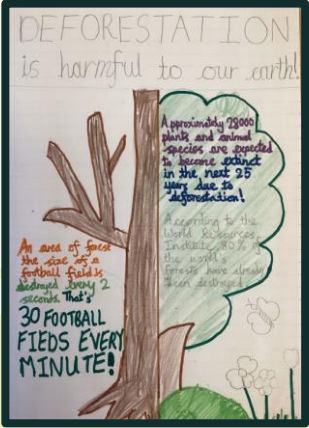 DEFORESTATION
is harmful to our earth!
Approximately 28000
plants and animal
species are expected
to become extinct
in the next 25
years due to
deforestation!
According to the
World Resources
Institute, 80% of
the world's
forests have already
been destroyed.
An area of forest
the size of a
football field is
destroyed every 2
seconds. That's
30 FOOTBALL
FIEDS EVERY
MINUTE!